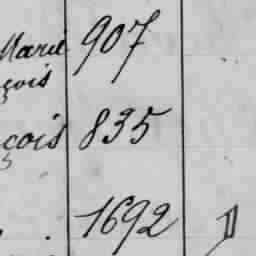 Marie 907
çois
çois 835
1692